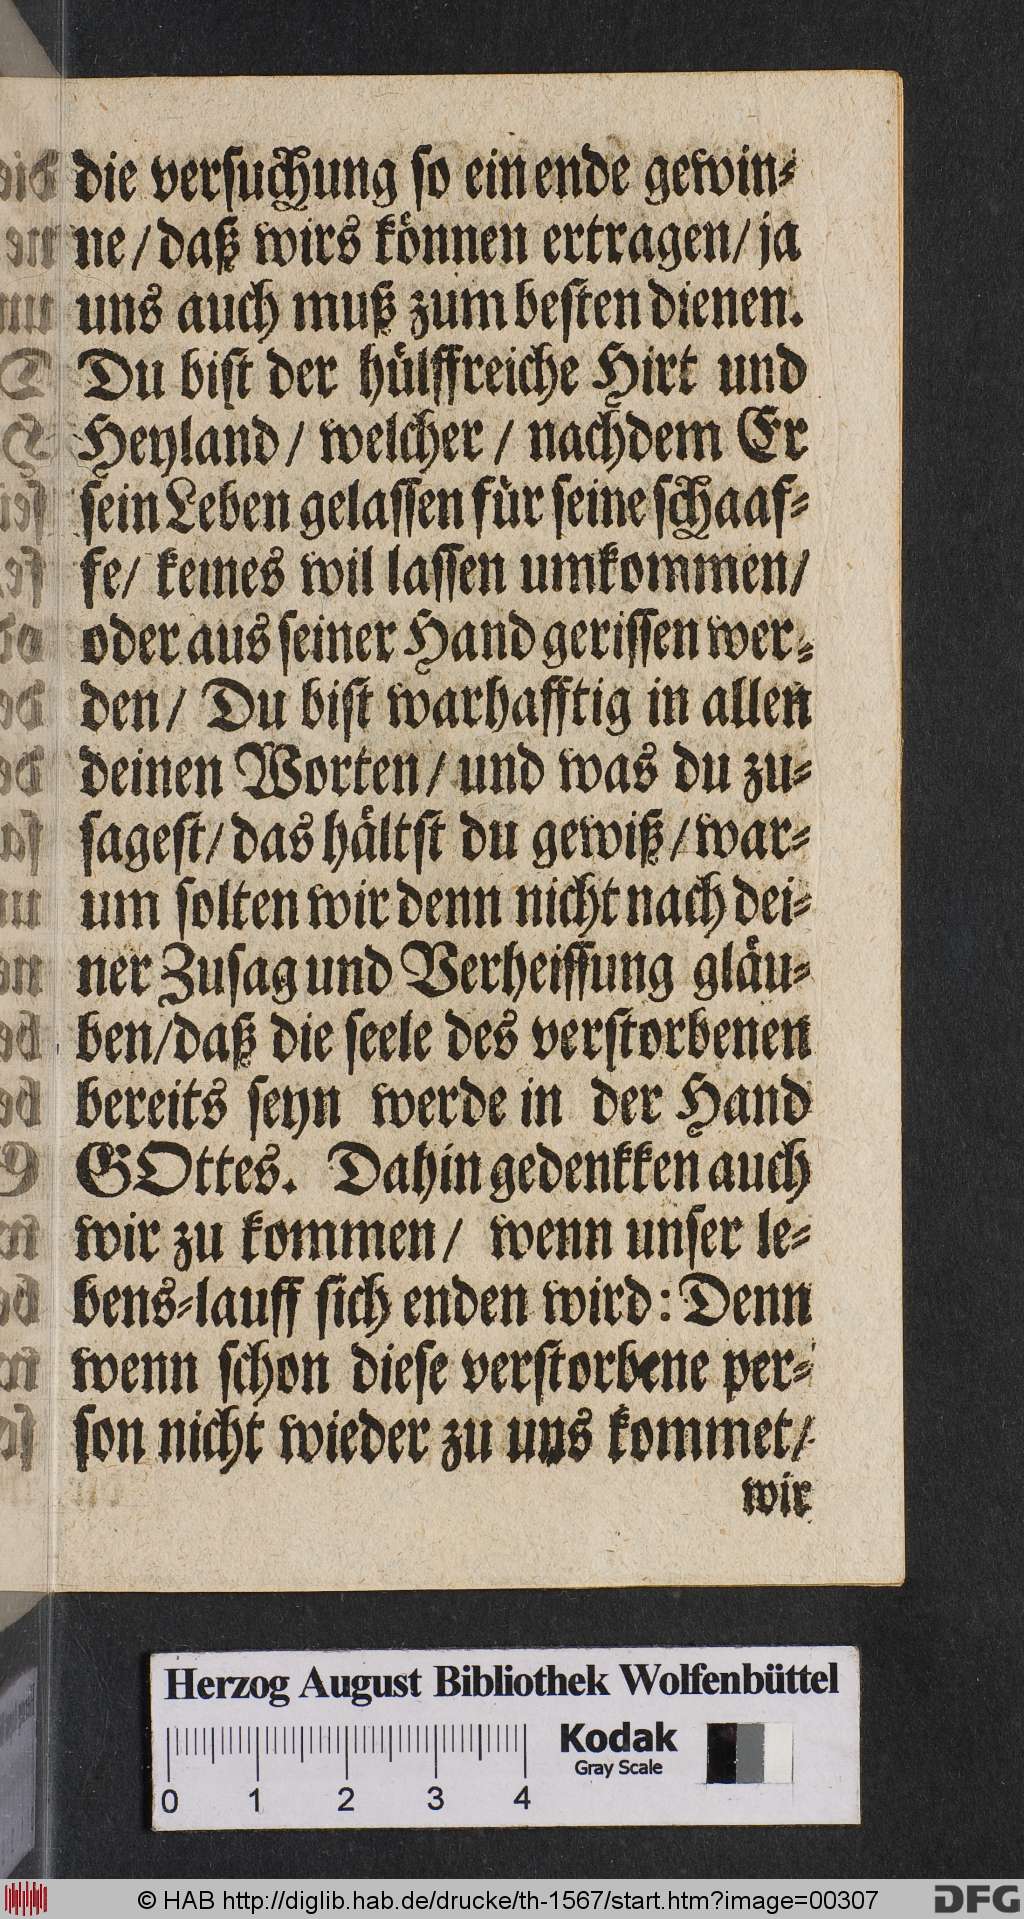 die versuchung so ein ende gewin-
ne / daß wirs können ertragen / ja
uns auch muß zum besten dienen.
Du bist der hülffreiche Hirt und
Heyland / welcher / nachdem Er
sein Leben gelassen für seine schaaf-
fe / keines wil lassen umkommen /
oder aus seiner Hand gerissen wer-
den / Du bist warhafftig in allen
deinen Worten / und was du zu-
sagest / das hältst du gewiß / war-
um solten wir denn nicht nach dei-
ner Zusag und Verheissung gläu-
ben / daß die seele des verstorbenen
bereits seyn werde in der Hand
GOttes. Dahin gedenkken auch
wir zu kommen / wenn unser le-
bens-lauff sich enden wird: Denn
wenn schon diese verstorbene per-
son nicht wieder zu uns kommet /
wir
Herzog August Bibliothek Wolfenbüttel
Kodak
Gray Scale
0 1 2 3 4
© HAB http://diglib.hab.de/drucke/th-1567/start.htm?image=00307
DFG